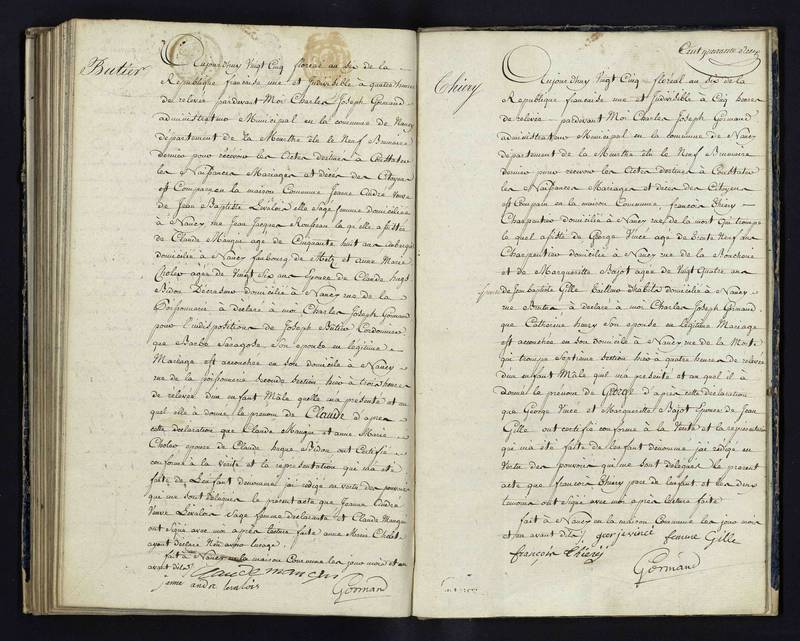 Butier
Aujourdhuy Vingt Cinq floréal an six de la
République française une et Indivisible à quatre heures
de relevée pardevant Moi Charles Joseph Gormand
administrateur Municipal en la commune de Nancy
département de la Meurthe élu le Neuf Brumaire
dernier pour recevoir les Actes destinés à Constater
les Naissances Mariages et décès des Citoyens
est Comparue en la maison Commune Jeanne André Veuve
de Jean Baptiste Levalois elle Sage femme domiciliée
à Nancy rue Jean Jacques Rousseau laquelle assistée
de Claude Mangin agé de Cinquante huit ans
domicilié à Nancy faubourg de Metz et anne Marie
Cholez agée de Vingt Six ans Epouse de Claude
Bidon domicilié à Nancy rue de la
Poissonnerie à déclaré à moi Charles Joseph Gormand
pour l'indisposition de Joseph Butier Cordonnier
que Barbe son epouse en légitime
Mariage est accouchée en son domicile à Nancy
rue de la poissonnerie seconde section hier à trois heures
de relevée d'un enfant Mâle quelle ma présenté et au
quel elle à donné le prenom de Claude d'après
cette déclaration que Claude Mangin et anne Marie
Cholez epouse de Claude Bidon ont Certifié
conforme à la Vérité et la représentation qui ma été
faite de l'enfant dénommé jai rédigé en vertu des pouvoirs
qui me sont délégués le présent acte que Jeanne André
Veuve Levalois Sage femme déclarante et Claude Mangin
ont Signé avec moi après lecture faite anne Marie Cholez
ayant déclaré Non avoir lusage
fait à Nancy en la maison Commune les jour mois et an
avant dits Claude mangin
jenne andré levalois Gormand
Cent quarante
Thiery
Aujourdhuy Vingt Cinq floréal an six de la
République française une et Indivisible à Cinq heures
de relevée pardevant Moi Charles Joseph Gormand
administrateur Municipal en la commune de Nancy
département de la Meurthe élu le Neuf Brumaire
dernier pour recevoir les Actes destinés à Constater
les Naissances Mariages et décès des Citoyens
est Comparu en la maison Commune, françois Thiery
Charpentier domicilié à Nancy rue de la Mort qui trompe
le quel assisté de George Vincé agé de trente Neuf ans
Charpentier domicilié à Nancy rue de la
et de Marguerite Bajot agée de Vingt Quatre ans
Epouse de Jean Baptiste Gille tailleur d'habits domicilié à Nancy
rue à déclaré à moi Charles Joseph Gormand
que Catherine son epouse en légitime Mariage
est accouchée en son domicile à Nancy rue de la Mort
qui trompe Septieme section hier à quatre heures de relevée
d'un enfant Mâle quil ma présenté et au quel il à
donné le prénom de George d'après cette déclaration
que George Vincé et Marguerite Bajot Epouse de Jean
Gille ont certifié conforme à la Vérité et la représentation
qui ma été faite de l'enfant dénommé jai rédigé en
Vertu des pouvoirs qui me sont délégués le présent
acte que françois Thiery pere de l'enfant et les deux
temoins ont Signé avec moi après lecture faite
fait à Nancy en la maison Commune les jour mois
et an avant dits george vincé femme Gille
françois Thierÿ
Gormand